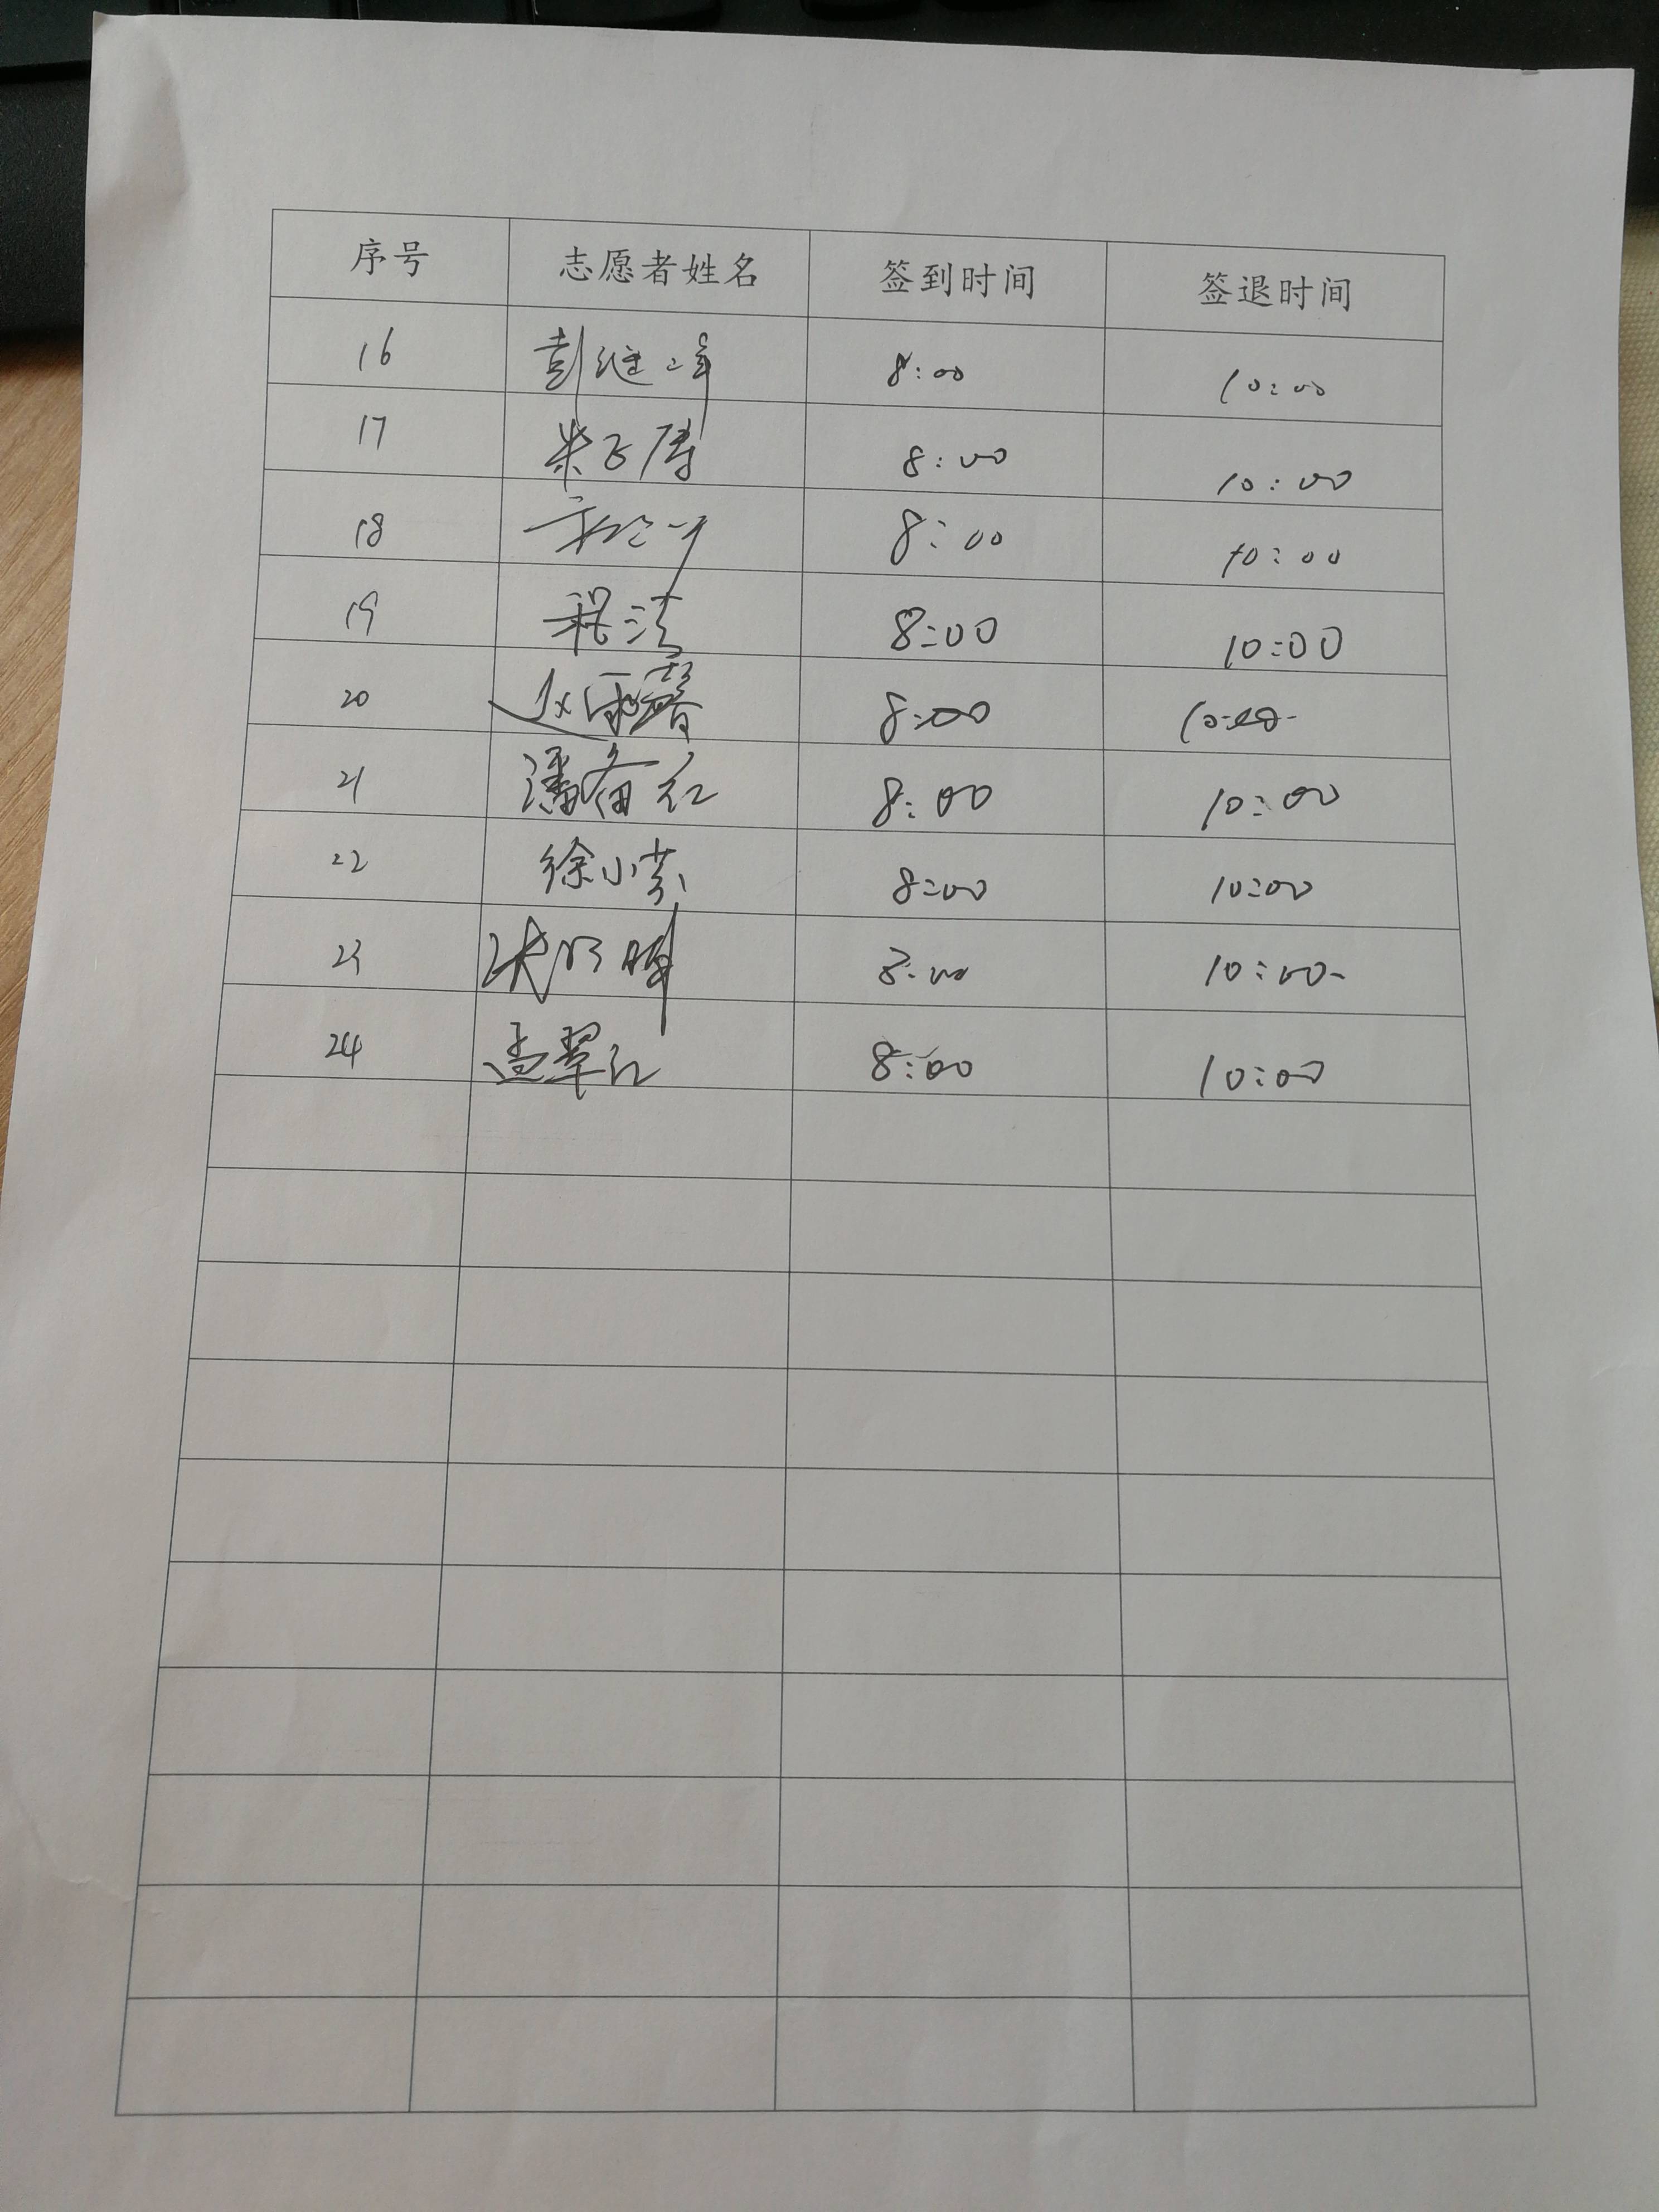 序号 志愿者姓名 签到时间 签退时间
16 彭继峰 8:00 10:00
17 朱飞涛 8:00 10:00
18 8:00 10:00
19 程洁 8:00 10:00
20 赵雨馨 8:00 10:00
21 潘备红 8:00 10:00
22 徐小芬 8:00 10:00
23 张明 8:00 10:00
24 孟翠红 8:00 10:00